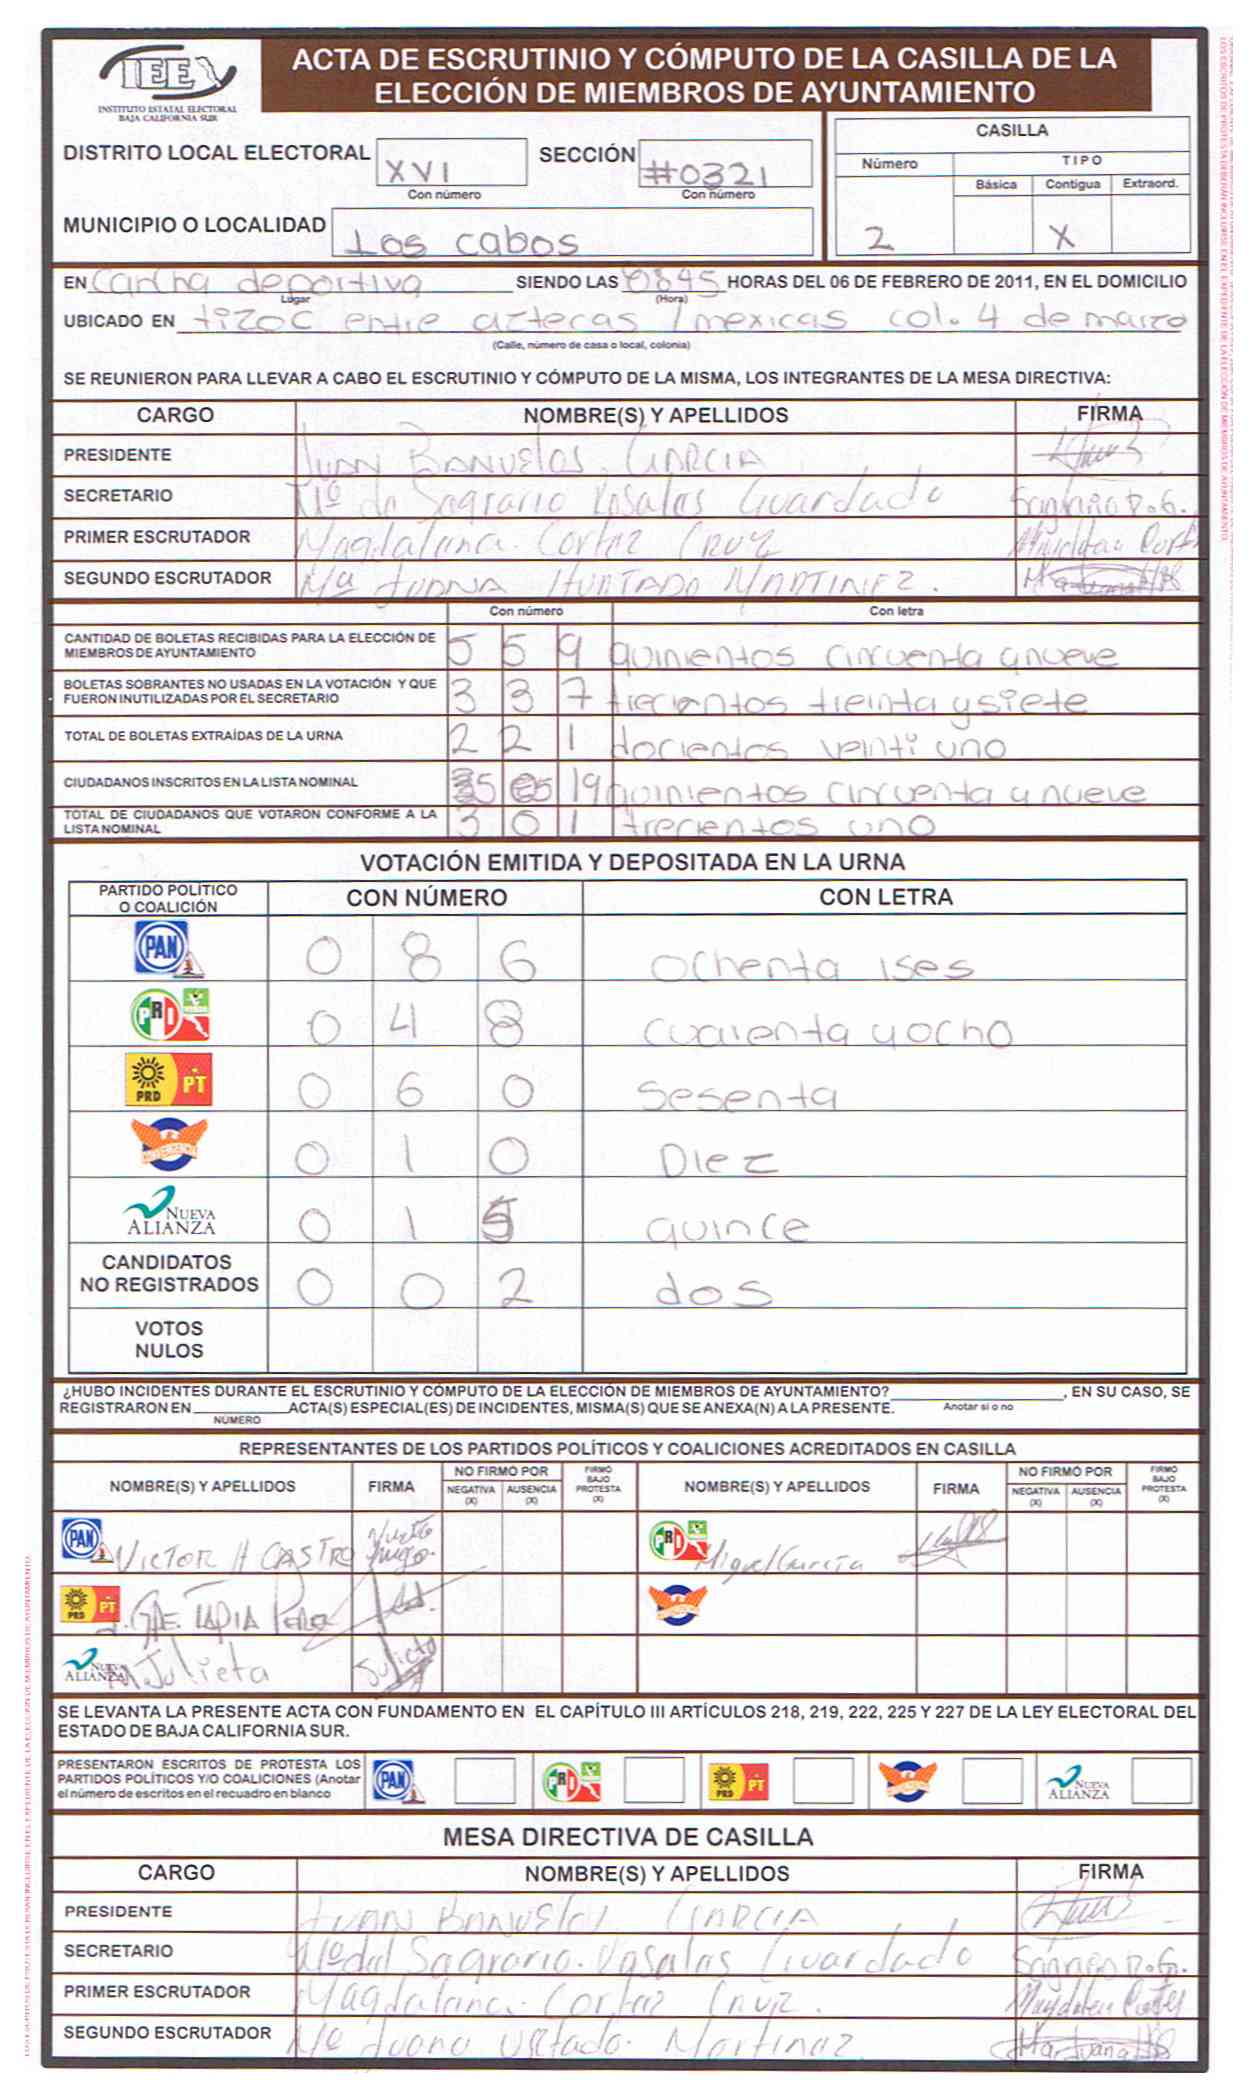 IEE
INSTITUTO ESTATAL ELECTORAL
BAJA CALIFORNIA SUR
ACTA DE ESCRUTINIO Y CÓMPUTO DE LA CASILLA DE LA
ELECCIÓN DE MIEMBROS DE AYUNTAMIENTO
DISTRITO LOCAL ELECTORAL XVI SECCIÓN #0321
Con número Con número
MUNICIPIO O LOCALIDAD Los cabos
CASILLA
Número TIPO
Básica Contigua Extraord.
2 X
EN cancha deportiva SIENDO LAS 0845 HORAS DEL 06 DE FEBRERO DE 2011, EN EL DOMICILIO
Lugar (Hora)
UBICADO EN tizoc entre aztecas / mexicas col. 4 de marzo
(Calle, número de casa o local, colonia)
SE REUNIERON PARA LLEVAR A CABO EL ESCRUTINIO Y CÓMPUTO DE LA MISMA, LOS INTEGRANTES DE LA MESA DIRECTIVA:
CARGO NOMBRE(S) Y APELLIDOS FIRMA
PRESIDENTE JUAN BANUELOS GARCIA
SECRETARIO Mª de Sagrario Rosales Guardado Sagrario R.G.
PRIMER ESCRUTADOR Magdalena Cortez Cruz
SEGUNDO ESCRUTADOR Mª JUANA HURTADO MARTINEZ.
Con número Con letra
CANTIDAD DE BOLETAS RECIBIDAS PARA LA ELECCIÓN DE
MIEMBROS DE AYUNTAMIENTO 5 5 9 quinientos cincuenta y nueve
BOLETAS SOBRANTES NO USADAS EN LA VOTACIÓN Y QUE
FUERON INUTILIZADAS POR EL SECRETARIO 3 3 7 trecientos treinta y siete
TOTAL DE BOLETAS EXTRAÍDAS DE LA URNA 2 2 1 docientos veinti uno
CIUDADANOS INSCRITOS EN LA LISTA NOMINAL quinientos cincuenta y nueve
TOTAL DE CIUDADANOS QUE VOTARON CONFORME A LA
LISTA NOMINAL 3 0 1 trecientos uno
VOTACIÓN EMITIDA Y DEPOSITADA EN LA URNA
PARTIDO POLÍTICO
O COALICIÓN CON NÚMERO CON LETRA
PAN 0 8 6 ochenta ises
PRI VERDE 0 4 8 cuarenta y ocho
PRD PT 0 6 0 sesenta
CONVERGENCIA 0 1 0 Diez
NUEVA ALIANZA 0 1 5 quince
CANDIDATOS
NO REGISTRADOS 0 0 2 dos
VOTOS
NULOS
¿HUBO INCIDENTES DURANTE EL ESCRUTINIO Y CÓMPUTO DE LA ELECCIÓN DE MIEMBROS DE AYUNTAMIENTO? , EN SU CASO, SE
REGISTRARON EN ACTA(S) ESPECIAL(ES) DE INCIDENTES, MISMA(S) QUE SE ANEXA(N) A LA PRESENTE. Anotar si o no
NÚMERO
REPRESENTANTES DE LOS PARTIDOS POLÍTICOS Y COALICIONES ACREDITADOS EN CASILLA
NOMBRE(S) Y APELLIDOS FIRMA NO FIRMÓ POR NEGATIVA (X) AUSENCIA (X) FIRMÓ BAJO PROTESTA (X) NOMBRE(S) Y APELLIDOS FIRMA NO FIRMÓ POR NEGATIVA (X) AUSENCIA (X) FIRMÓ BAJO PROTESTA (X)
PAN VICTOR H CASTRO PRI Miguel García
PRD PT TAPIA CONVERGENCIA
NUEVA ALIANZA Julieta Julieta
SE LEVANTA LA PRESENTE ACTA CON FUNDAMENTO EN EL CAPÍTULO III ARTÍCULOS 218, 219, 222, 225 Y 227 DE LA LEY ELECTORAL DEL
ESTADO DE BAJA CALIFORNIA SUR.
PRESENTARON ESCRITOS DE PROTESTA LOS
PARTIDOS POLÍTICOS Y/O COALICIONES (Anotar
el número de escritos en el recuadro en blanco
PAN PRI PRD PT CONVERGENCIA NUEVA ALIANZA
MESA DIRECTIVA DE CASILLA
CARGO NOMBRE(S) Y APELLIDOS FIRMA
PRESIDENTE JUAN BANUELOS GARCIA
SECRETARIO Mª del Sagrario Rosales Guardado Sagrario R.G.
PRIMER ESCRUTADOR Magdalena Cortez Cruz.
SEGUNDO ESCRUTADOR Mª Juana Urtado Martinez